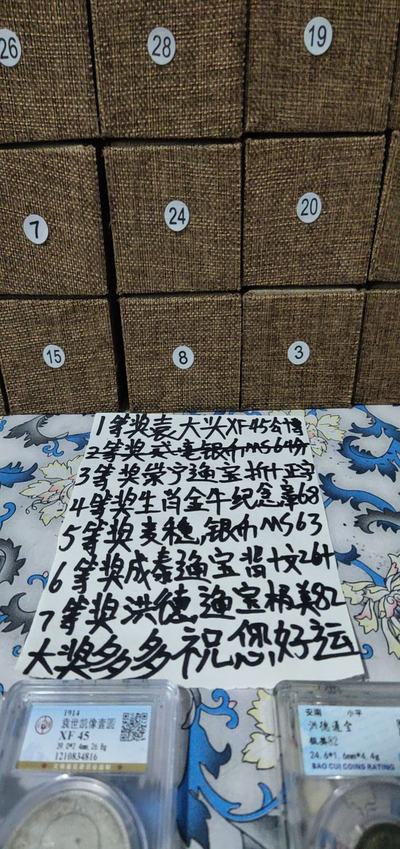 26
28
19
7
24
20
15
8
3
1等奖袁大头XF45公博
3等奖崇宁通宝折十正字
4等奖生肖金牛纪念章68
5等奖麦穗银币MS63
6等奖咸泰通宝背十文264
7等奖洪德通宝极美82
大奖多多祝您好运
1914
袁世凯像壹圆
XF 45
39.0*2.4mm,26.8g
1210834816
安南 小平
洪德通宝
极美82
24.6*1.6mm*4.4g
BAO CUI COINS RATING